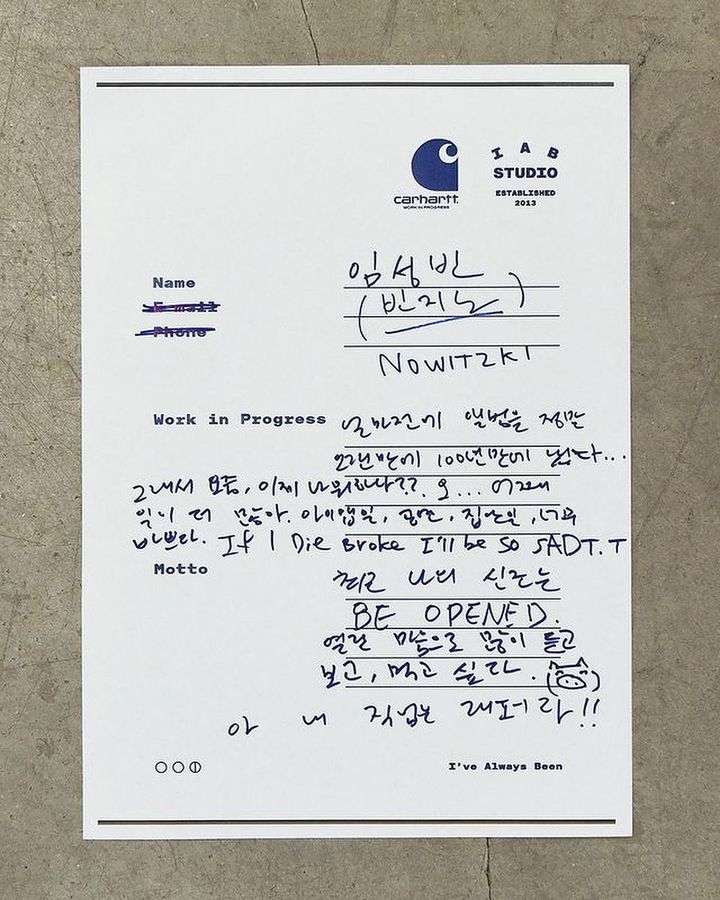 carhartt
WORK IN PROGRESS
I A B
STUDIO
ESTABLISHED
2013
Name
임성빈
E-mail
(빈지노)
Phone
NOWITZKI
Work in Progress
얼마전에 앨범을 정말
오랜만에 100년만에 냈다...
그래서 보통, 이제 나 뭐하나??. 오... 어째
일이 더 많아. 아이앱일, 공연, 집안일, 너무
바쁘다. If I Die Broke I'll be so SAD T.T
Motto
최근 나의 신조는
BE OPENED.
열린 마음으로 많이 듣고
보고, 먹고 싶다.
아 내 직업은 래퍼라!!
I've Always Been